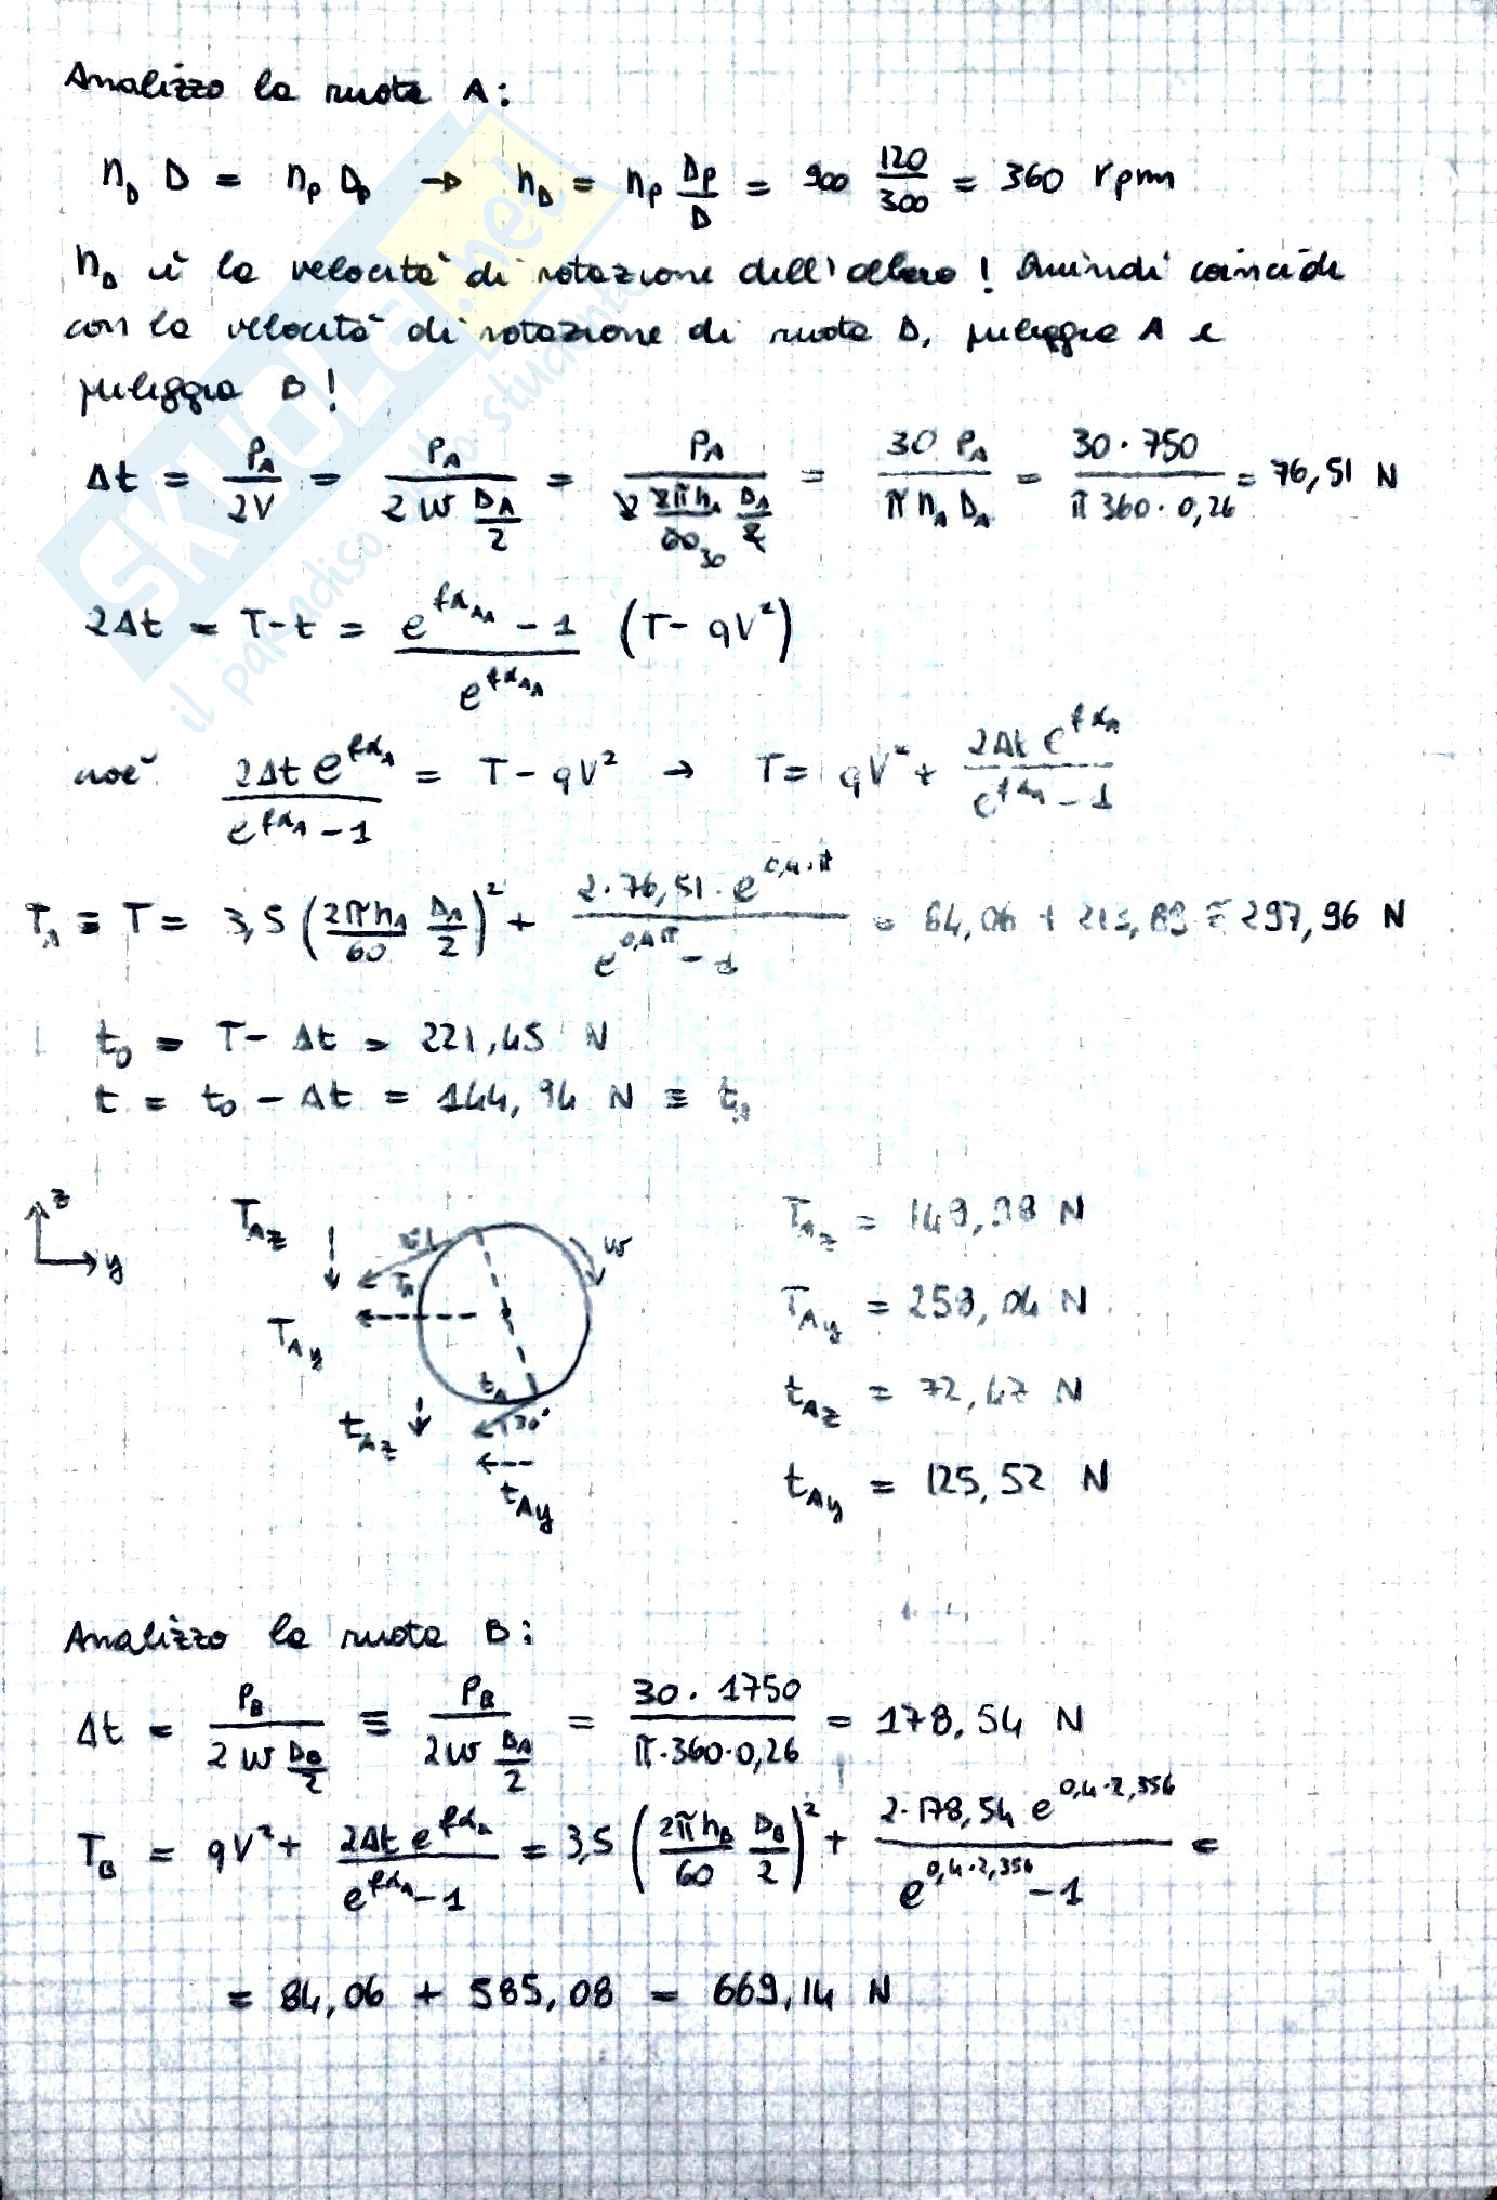 Analizzo la ruota A:
n_D D = n_P D_P → n_D = n_P D_P/D = 900 120/300 = 360 rpm
n_D è la velocità di rotazione dell'albero! Quindi coincide
con la velocità di rotazione di ruota D, puleggia A e
puleggia B!
Δt = P_A/2V = P_A/(2 ω D_A/2) = P_A/(2 2πn_A/60 30 D_A/2) = 30 P_A/(π n_A D_A) = 30·750/(π 360·0,26) = 76,51 N
2Δt = T-t = (e^{fα_{AA}} - 1)/e^{fα_{AA}} (T - qV²)
cioè 2Δt e^{fα_A}/(e^{fα_A} - 1) = T - qV² → T = qV² + 2Δt e^{fα_A}/(e^{fα_A} - 1)
T_A ≡ T = 3,5 (2πn_A/60 D_A/2)² + 2·76,51·e^{0,4·π}/(e^{0,4π} - 1) = 84,06 + 213,89 = 297,96 N
t_0 = T - Δt = 221,45 N
t = t_0 - Δt = 144,94 N ≡ t_A
z
y
T_{Az}
T_A
ω
T_{Ay}
t_A
30°
t_{Az}
t_{Ay}
T_{Az} = 148,98 N
T_{Ay} = 258,04 N
t_{Az} = 72,47 N
t_{Ay} = 125,52 N
Analizzo la ruota B:
Δt = P_B/(2 ω D_B/2) ≡ P_B/(2ω D_A/2) = 30·1750/(π·360·0,26) = 178,54 N
T_B = qV² + 2Δt e^{fα_B}/(e^{fα_A} - 1) = 3,5 (2πn_B/60 D_B/2)² + 2·178,54 e^{0,4·2,356}/(e^{0,4·2,356} - 1) =
= 84,06 + 585,08 = 669,14 N
SKUOLA.net
il paradiso dello studente